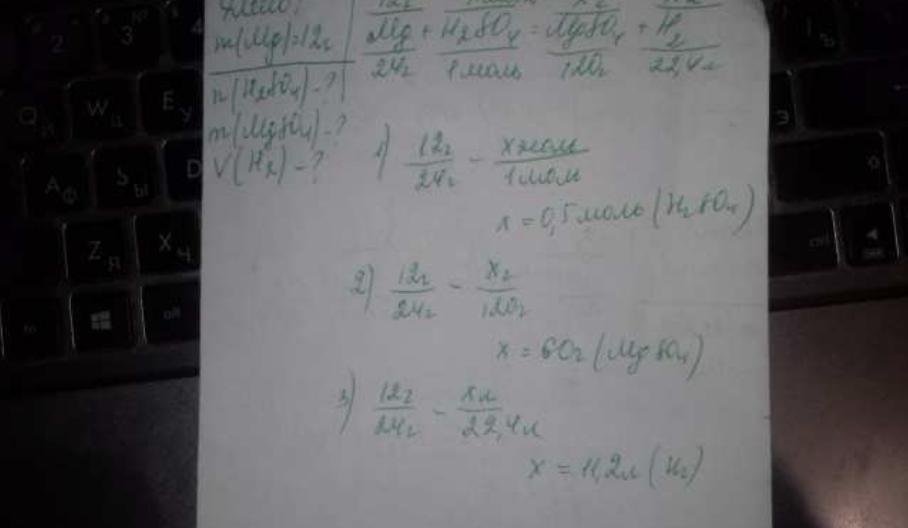 Дано:
m(Mg)=12г
n(H₂SO₄)-?
m(MgSO₄)-?
V(H₂)-?
12г
Mg + H₂SO₄ = MgSO₄ + H₂
24г 1моль 120г 22,4л
1) 12г/24г - xмоль/1моль
x = 0,5моль (H₂SO₄)
2) 12г/24г - xг/120г
x = 60г (MgSO₄)
3) 12г/24г - xл/22,4л
x = 11,2л (H₂)
2
3
4
Q Й
W Ц
E У
A Ф
S Ы
D
Z Я
X Ч
fn
alt
ctrl
Ъ